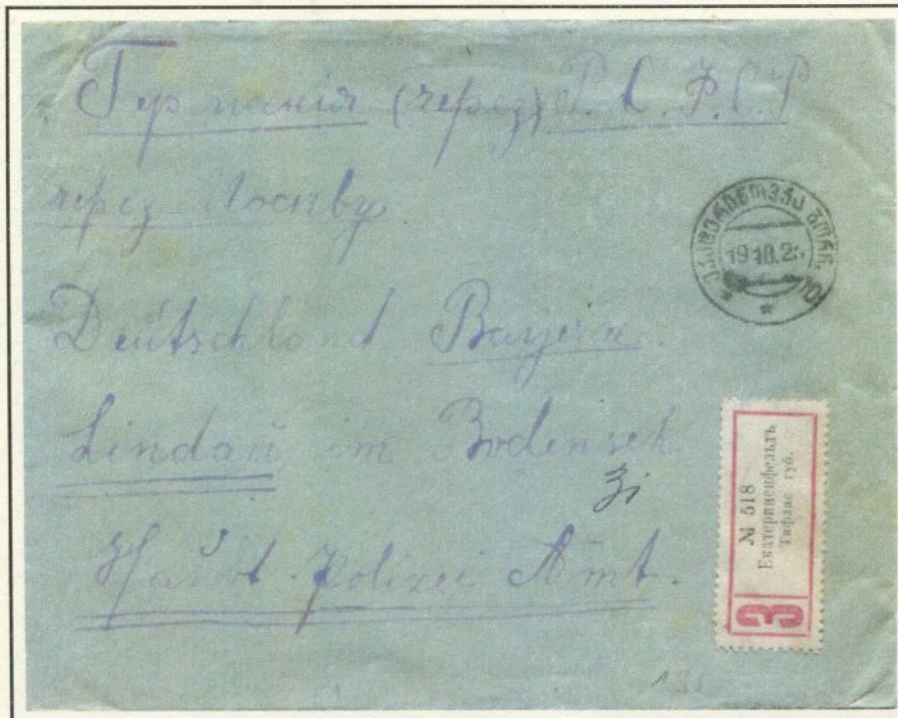 Германія (черед) Р. С. Ф. С. Р
черед Москву
Deütschland Bayern.
Lindaŭ im Bodenseh
Haŭbt-Polizei Amt.
19.10.2
№ 518
Екатериненфельдъ
Тифлис губ.
З